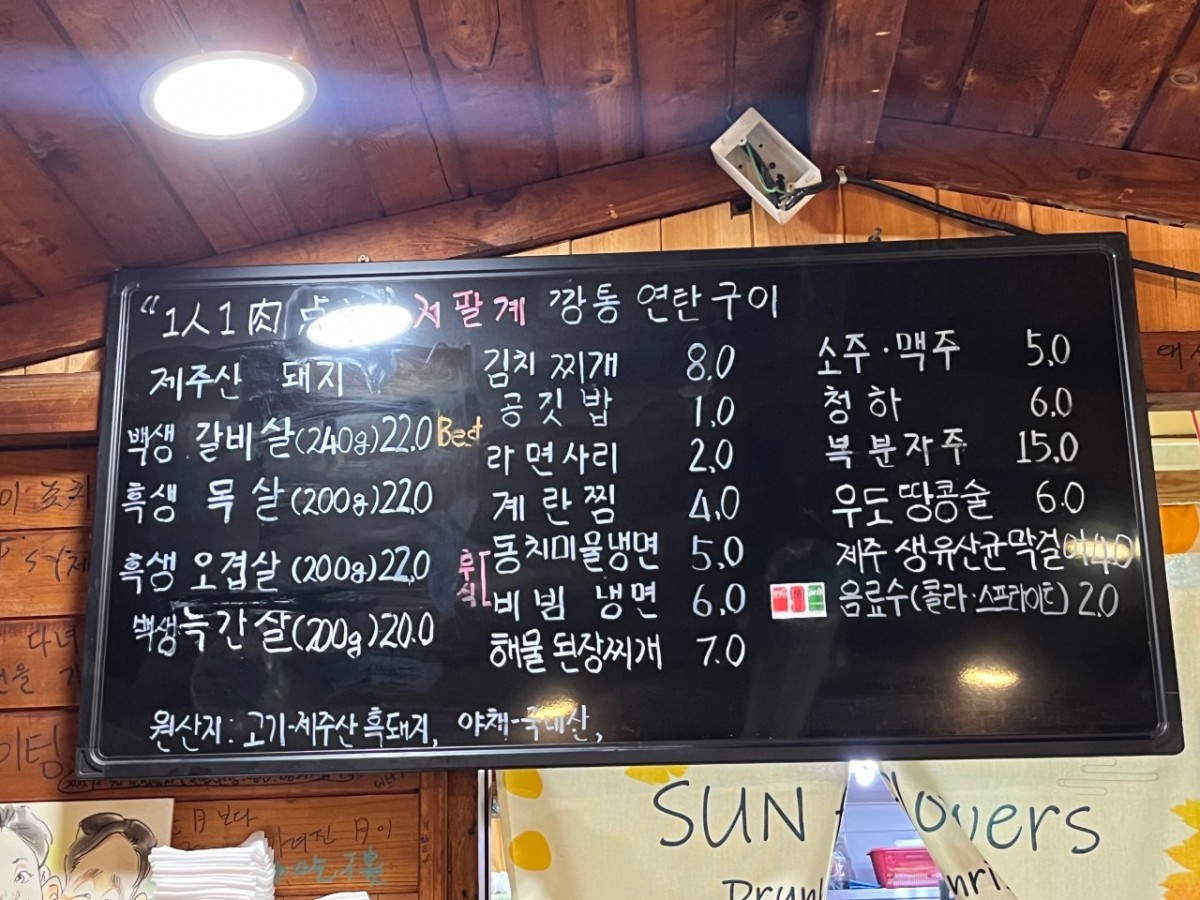 "1人1肉 저팔계 깡통 연탄구이
제주산 돼지
백생 갈비살(240g)22.0 Best
흑생 목살(200g)22.0
흑생 오겹살(200g)22.0
백생 늑간살(200g)20.0
김치찌개 8.0
공깃밥 1.0
라면사리 2.0
계란찜 4.0
후식
동치미물냉면 5.0
비빔 냉면 6.0
해물된장찌개 7.0
소주·맥주 5.0
청하 6.0
복분자주 15.0
우도 땅콩술 6.0
제주 생유산균막걸리4.0
음료수(콜라·스프라이트) 2.0
원산지: 고기-제주산흑돼지, 야채-국내산,
SUN Flowers